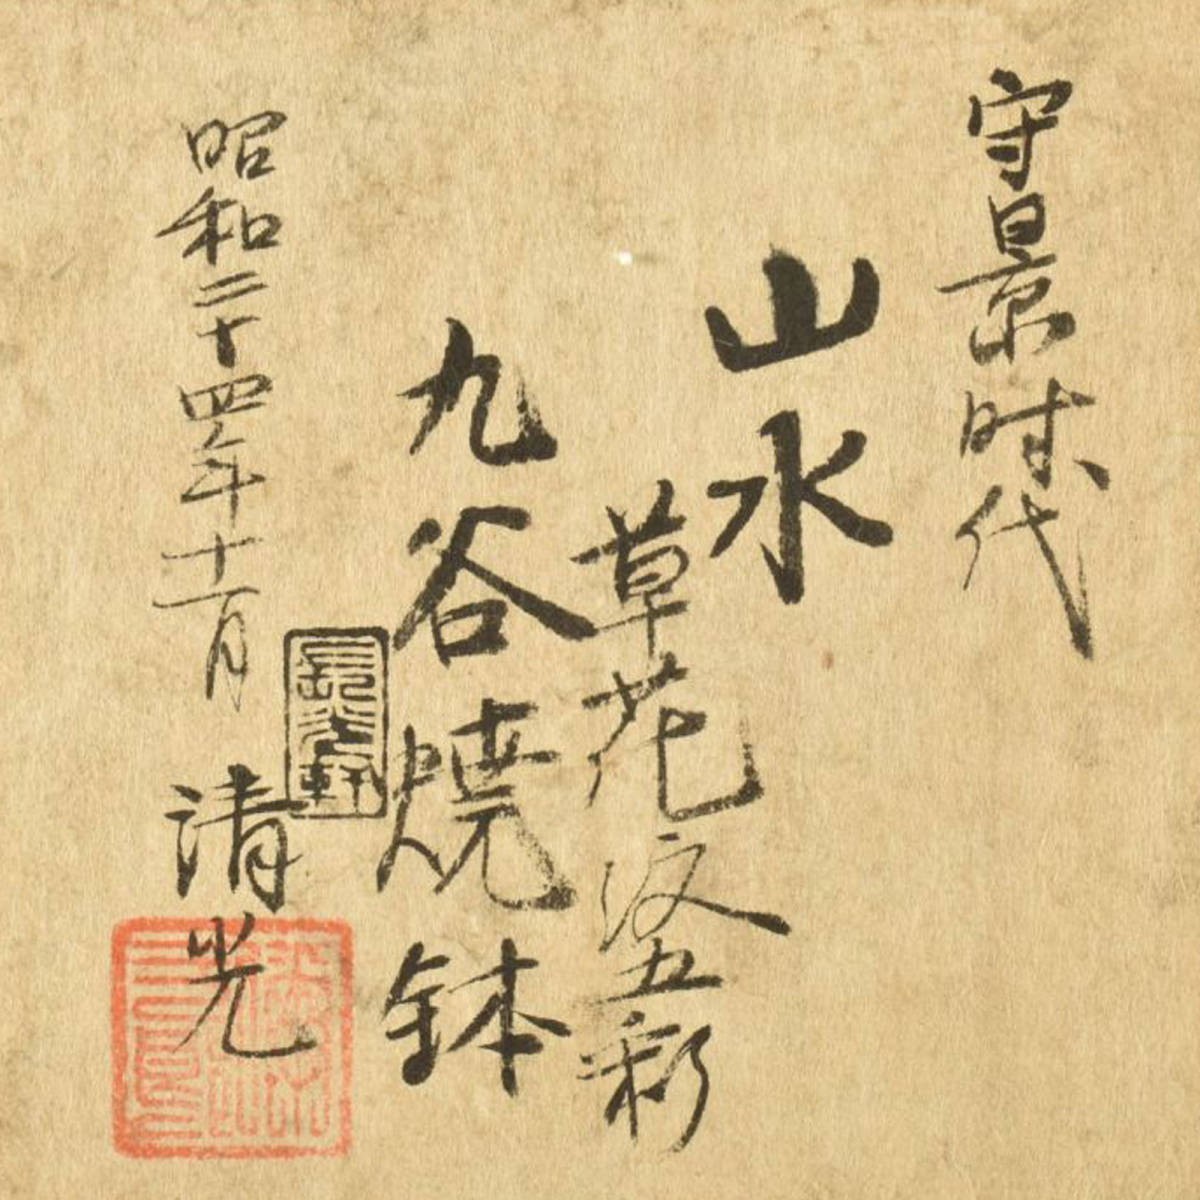 守景时代
山水
草花汶五彩
九谷焼鉢
昭和二十四年十一月
清光